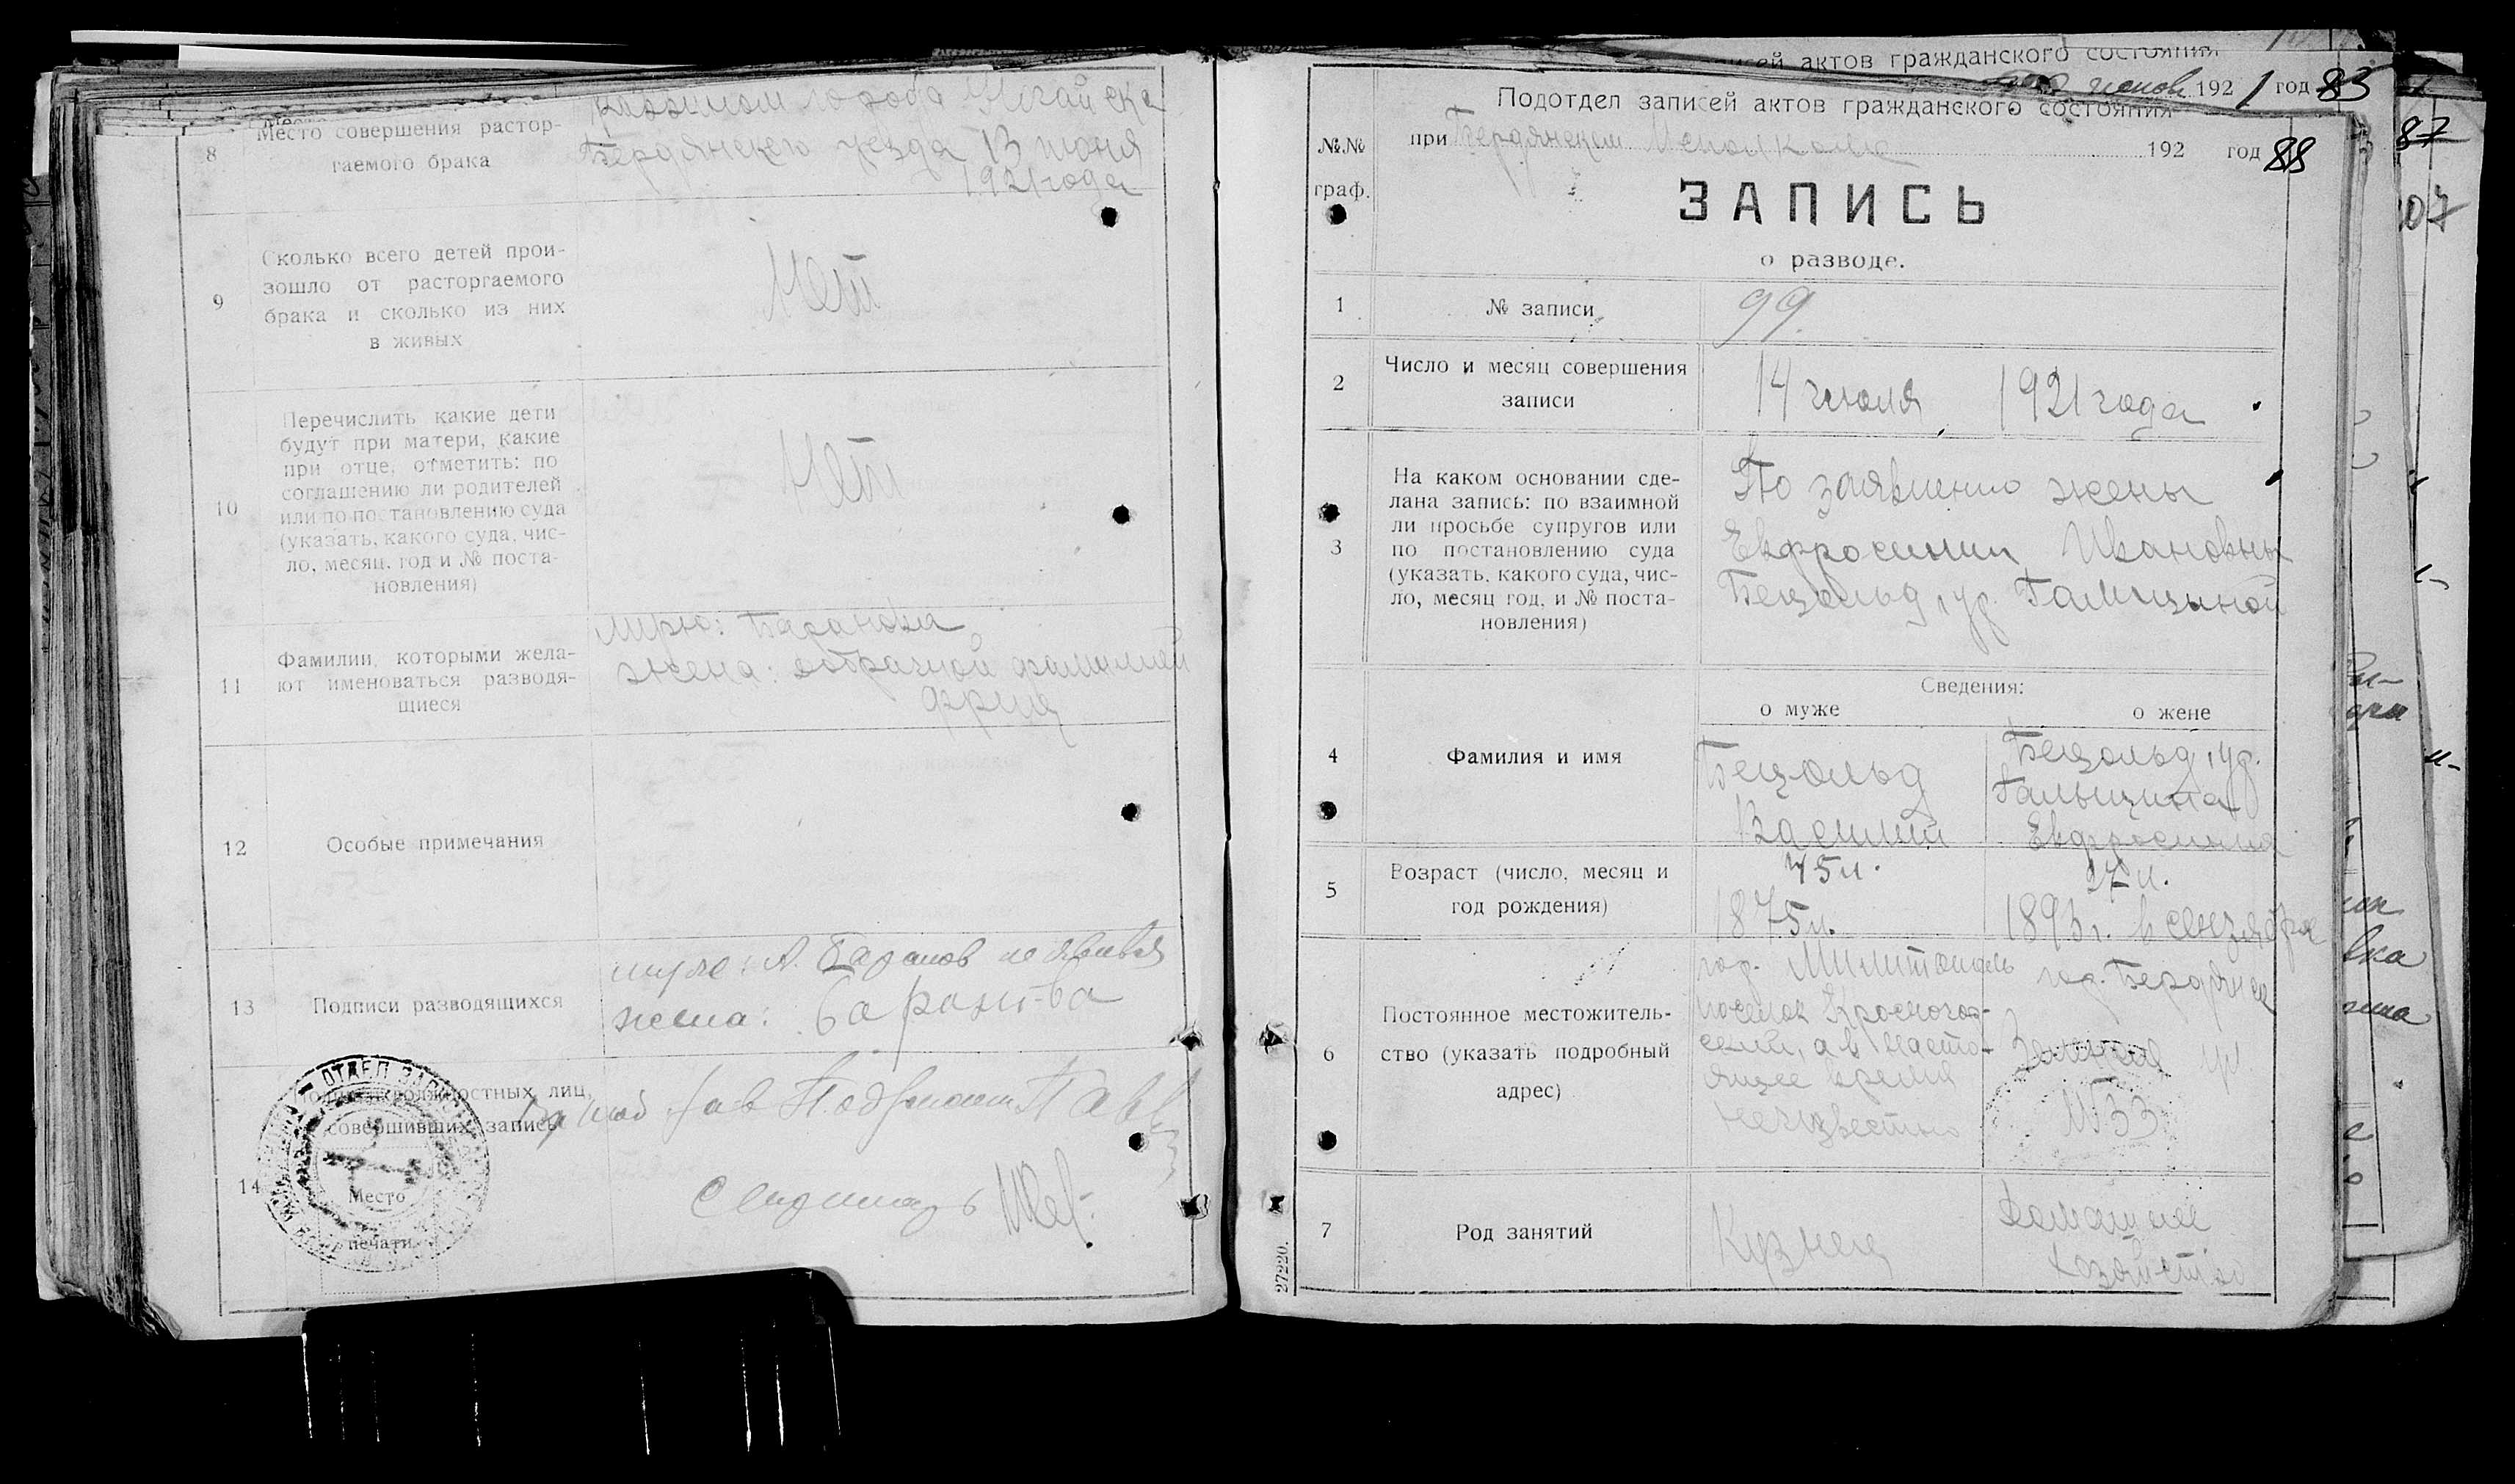 8
Место совершения растор-
гаемого брака
города Ногайска
Бердянского уезда 13 июня
1921 года
9
Сколько всего детей прои-
зошло от расторгаемого
брака и сколько из них
в живых
Нет
10
Перечислить какие дети
будут при матери, какие
при отце, отметить: по
соглашению ли родителей
или по постановлению суда
(указать, какого суда, чис-
ло, месяц, год и № поста-
новления)
Нет
11
Фамилии, которыми жела-
ют именоваться разводя-
щиеся
Баранова
жена: добрачной фамилией
Фриц
12
Особые примечания
13
Подписи разводящихся
муж: А. Баранов не явился
жена: Баранова
14
должностных лиц,
совершивших запись
Место
печати
ОТДЕЛ
актов гражданского состояния
192 1 год 85
Подотдел записей актов гражданского состояния
при Бердянском 192 год 88
№№
граф.
ЗАПИСЬ
о разводе.
1
№ записи
99.
2
Число и месяц совершения
записи
14 июля 1921 года
3
На каком основании сде-
лана запись: по взаимной
ли просьбе супругов или
по постановлению суда
(указать, какого суда, чис-
ло, месяц год, и № поста-
новления)
По заявлению жены
Евфросинии Ивановны
Бецольд, ур. Гальцыной
Сведения:
о муже
о жене
4
Фамилия и имя
Бецольд
Василий
Бецольд, ур.
Гальцина
Евфросиния
5
Возраст (число, месяц и
год рождения)
45 л.
1875 г.
27 л.
1893 г. в сентября
6
Постоянное местожитель-
ство (указать подробный
адрес)
гор. Милитополь
поселок
а в насто-
ящее время
неизвестно
гор. Бердянск
ул
№ 33
7
Род занятий
Кузнец
Домашнее
хозяйство
27220.
87
107